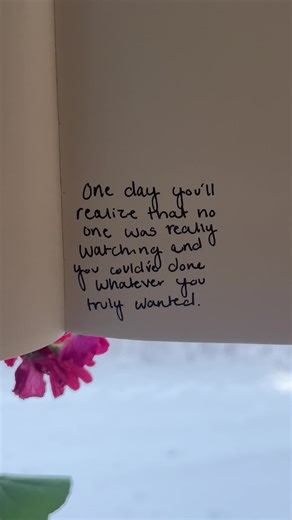 One day you'll
realize that no
one was really
watching and
you could've done
whatever you
truly wanted.